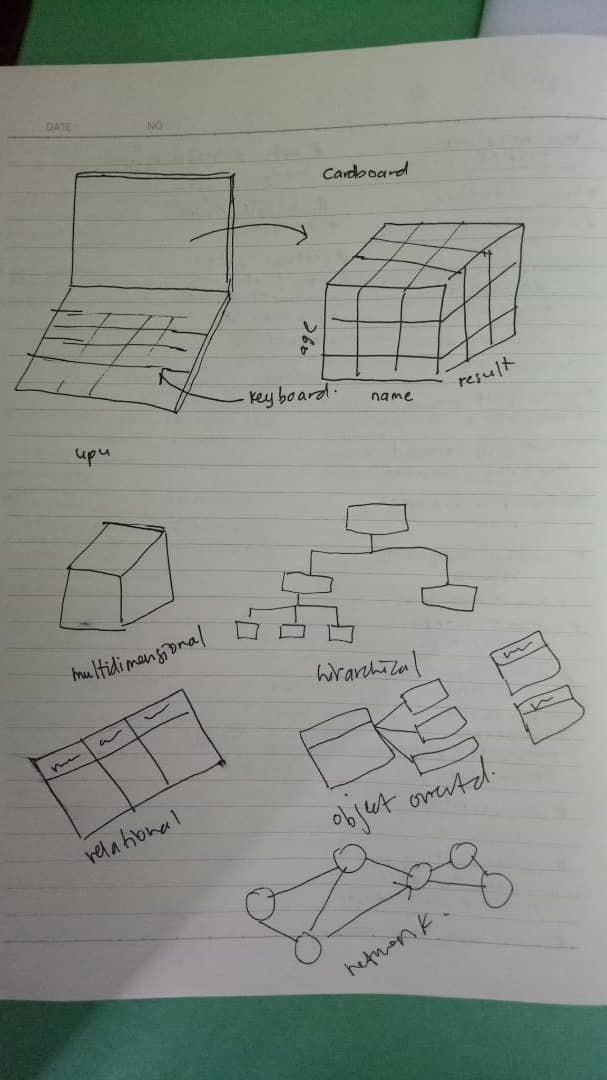 DATE: NO
Cardboard
age
result
keyboard.
name
upu
multidimensional
hirarchical
relational
object orrentd.
network.